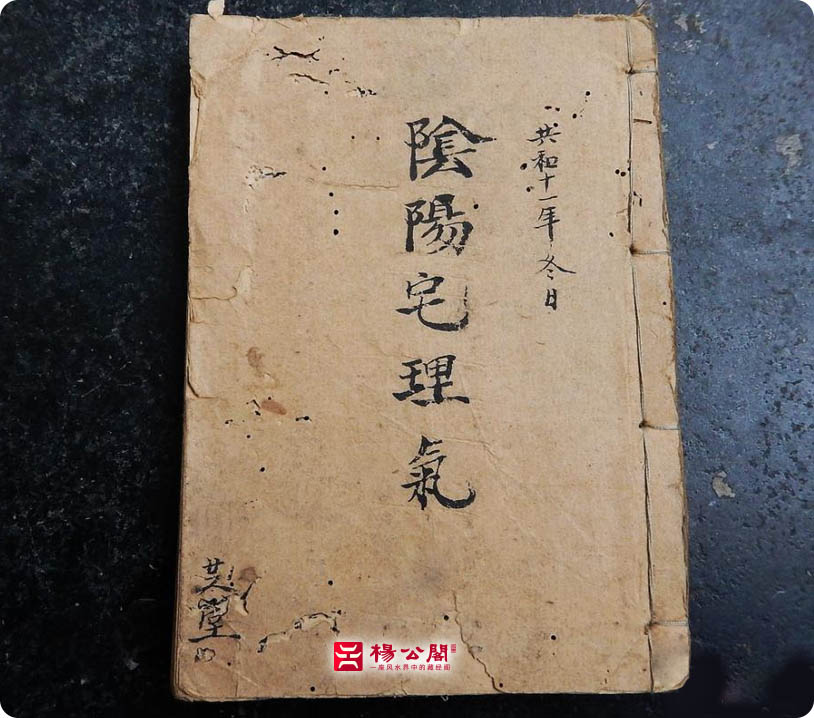 共和十一年冬日
陰陽宅理氣
堂
楊公閣
一座风水界中的藏经阁